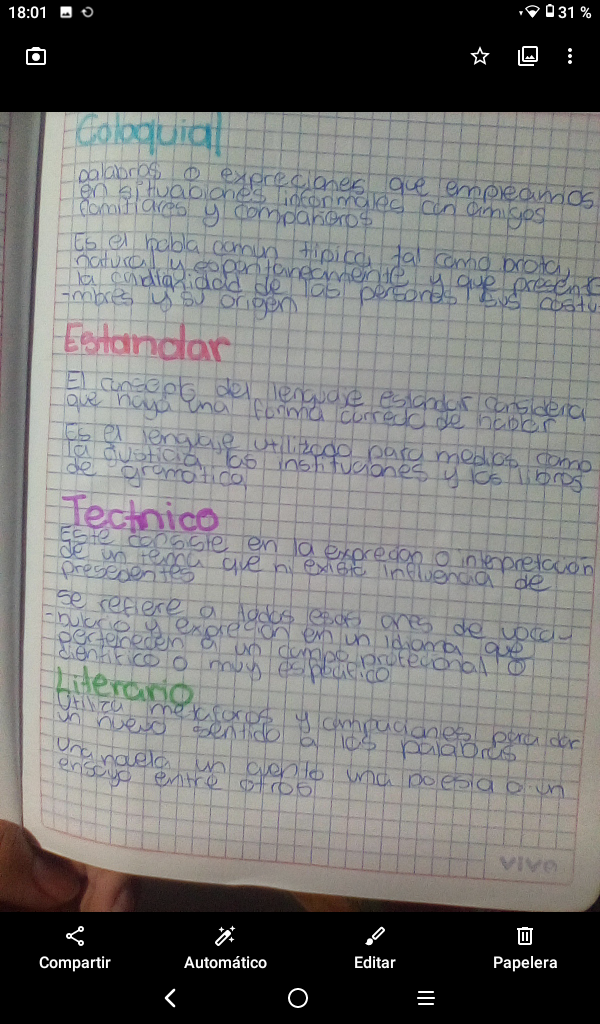 18:01
31 %
Coloquial
palabras o expreciones que empleamos
en situaciones informales con amigos
familiares y compañeros
Es el habla comun tipica, tal como brota,
natural y espontaneamente y que present
la cotidianidad de las personas sus costu
-mbres y su origen
Estandar
El consepto del lenguaje estandar considera
que haya una forma correcta de hablar
Es el lenguaje utilizado para medios como
la justicia, las instituciones y los libros
de gramatica
Tecnico
Este consiste en la exprecion o interpretacion
de un tema que ni existe influencia de
presedentes
Se refiere a todas esas de voca-
-bulario y exprecion en un idioma que
perteneden a un campo profecional o
cientifico o muy espesifico
Literario
Utiliza metaforas y para dar
un nuevo sentido a las palabras
Una novela un cuento una poesia o un
ensayo entre otros
viva
Compartir
Automático
Editar
Papelera